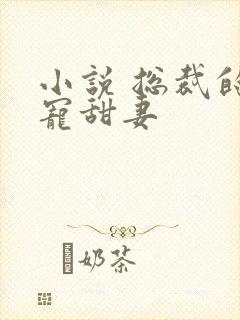 小說 总裁的
寵甜妻
奶茶